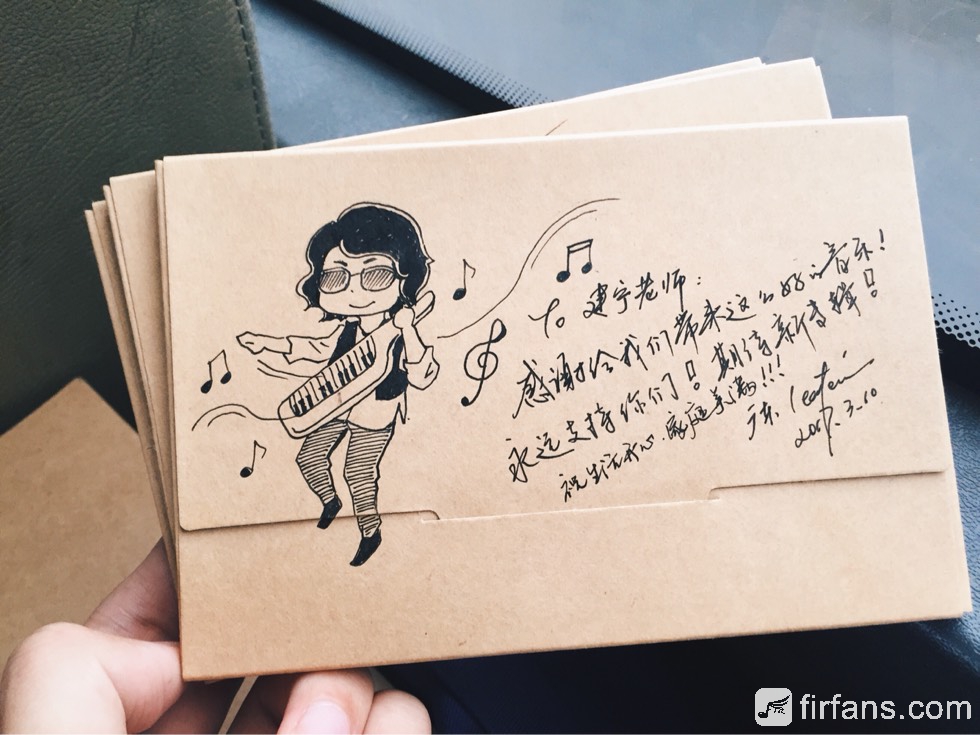 To 建宁老师：
感谢给我们带来这么好的音乐！
永远支持你们！期待新专辑！
祝生活开心，家庭美满!!!
2017.3.10
firfans.com